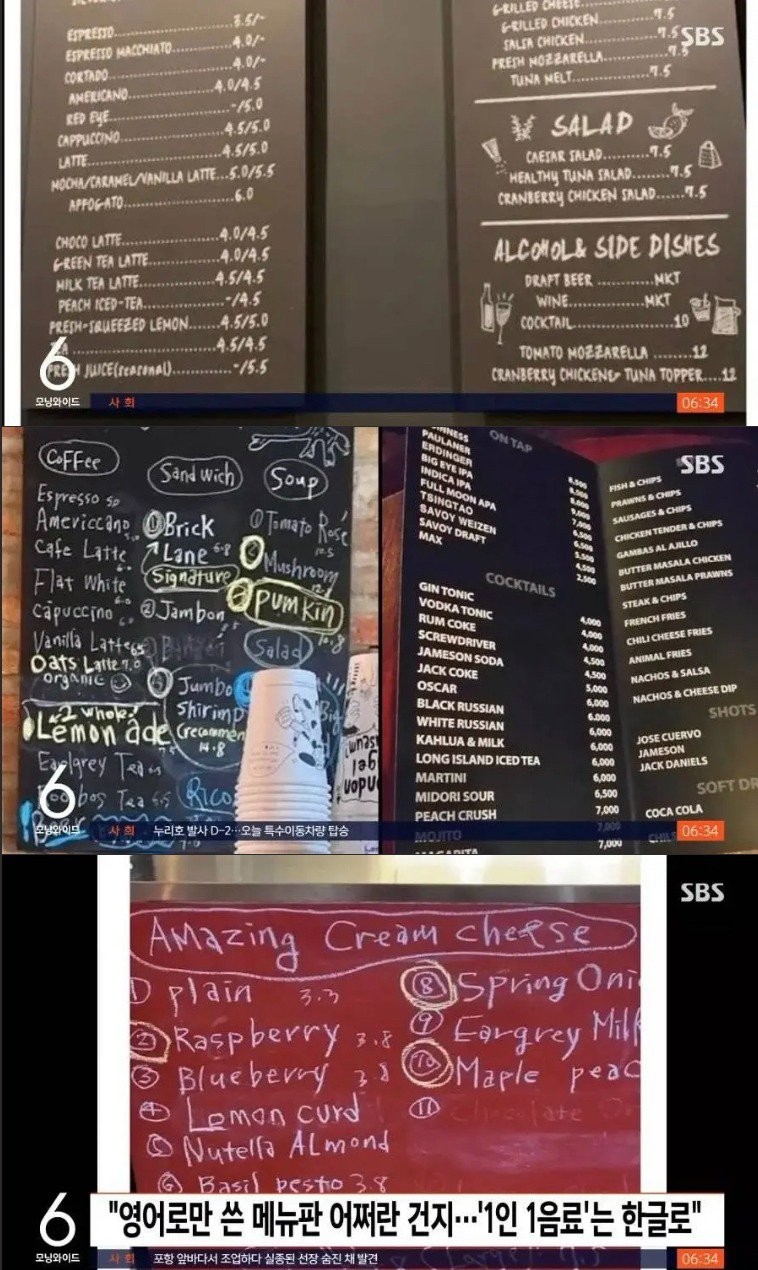 ESPRESSO 3.5/-
ESPRESSO MACCHIATO 4.0/-
CORTADO 4.0/-
AMERICANO 4.0/4.5
RED EYE -/5.0
CAPPUCCINO 4.5/5.0
LATTE 4.5/5.0
MOCHA/CARAMEL/VANILLA LATTE...5.0/5.5
AFFOGATO 6.0
CHOCO LATTE 4.0/4.5
GREEN TEA LATTE 4.0/4.5
MILK TEA LATTE 4.5/4.5
PEACH ICED-TEA -/4.5
PRESH-SQUEEZED LEMON 4.5/5.0
4.5/4.5
JUICE(seasonal) -/5.5
GRILLED CHEESE
GRILLED CHICKEN 7.5
SALSA CHICKEN 7.5
FRESH MOZZARELLA 7.5
TUNA MELT 7.5
SBS
SALAD
CAESAR SALAD 7.5
HEALTHY TUNA SALAD 7.5
CRANBERRY CHICKEN SALAD 7.5
ALCOHOL & SIDE DISHES
DRAFT BEER MKT
WINE MKT
COCKTAIL 10
TOMATO MOZZARELLA 12
CRANBERRY CHICKEN& TUNA TOPPER 12
6
모닝와이드
사회
06:34
Coffee
Espresso 5.0
Americcano
Cafe Latte
Flat White
Capuccino
Vanilla Latte
Oats Latte 7.0
organic
whole!
Lemon ade
Earlgrey Tea
Tea 6.5
Sandwich
① Brick
Lane 6.8
Signature
② Jambon
Jumbo
Shirimp
(recommen
14.8
Rico
Soup
① Tomato Rosé
10.5
Mushroom
Pumkin
10.8
Salad
ON TAP
PAULANER
ERDINGER
BIG EYE IPA
INDICA IPA
FULL MOON APA
TSINGTAO
SAVOY WEIZEN
SAVOY DRAFT
MAX 2,500
COCKTAILS
GIN TONIC 4,000
VODKA TONIC 4,000
RUM COKE 4,000
SCREWDRIVER 4,500
JAMESON SODA 4,500
JACK COKE 4,500
OSCAR 5,000
BLACK RUSSIAN 6,000
WHITE RUSSIAN 6,000
KAHLUA & MILK 6,000
LONG ISLAND ICED TEA 6,000
MARTINI 6,000
MIDORI SOUR 6,500
PEACH CRUSH 7,000
MOJITO 7,000
SBS
FISH & CHIPS
PRAWNS & CHIPS
SAUSAGES & CHIPS
CHICKEN TENDER & CHIPS
GAMBAS AL AJILLO
BUTTER MASALA CHICKEN
BUTTER MASALA PRAWNS
STEAK & CHIPS
FRENCH FRIES
CHILI CHEESE FRIES
ANIMAL FRIES
NACHOS & SALSA
NACHOS & CHEESE DIP
SHOTS
JOSE CUERVO
JAMESON
JACK DANIELS
SOFT DR
COCA COLA
6
모닝와이드
사회 누리호 발사 D-2…오늘 특수이동차량 탑승
06:34
SBS
Amazing Cream cheese
① plain 3.3
② Raspberry 3.8
③ Blueberry 3.8
④ Lemon curd
⑤ Nutella Almond
⑥ Basil pesto 3.8
⑧ Spring Oni
⑨ Eargrey Mil
⑩ Maple peac
⑪
"영어로만 쓴 메뉴판 어쩌란 건지…'1인 1음료'는 한글로"
6
모닝와이드
사회 포항 앞바다서 조업하다 실종된 선장 숨진 채 발견
06:34